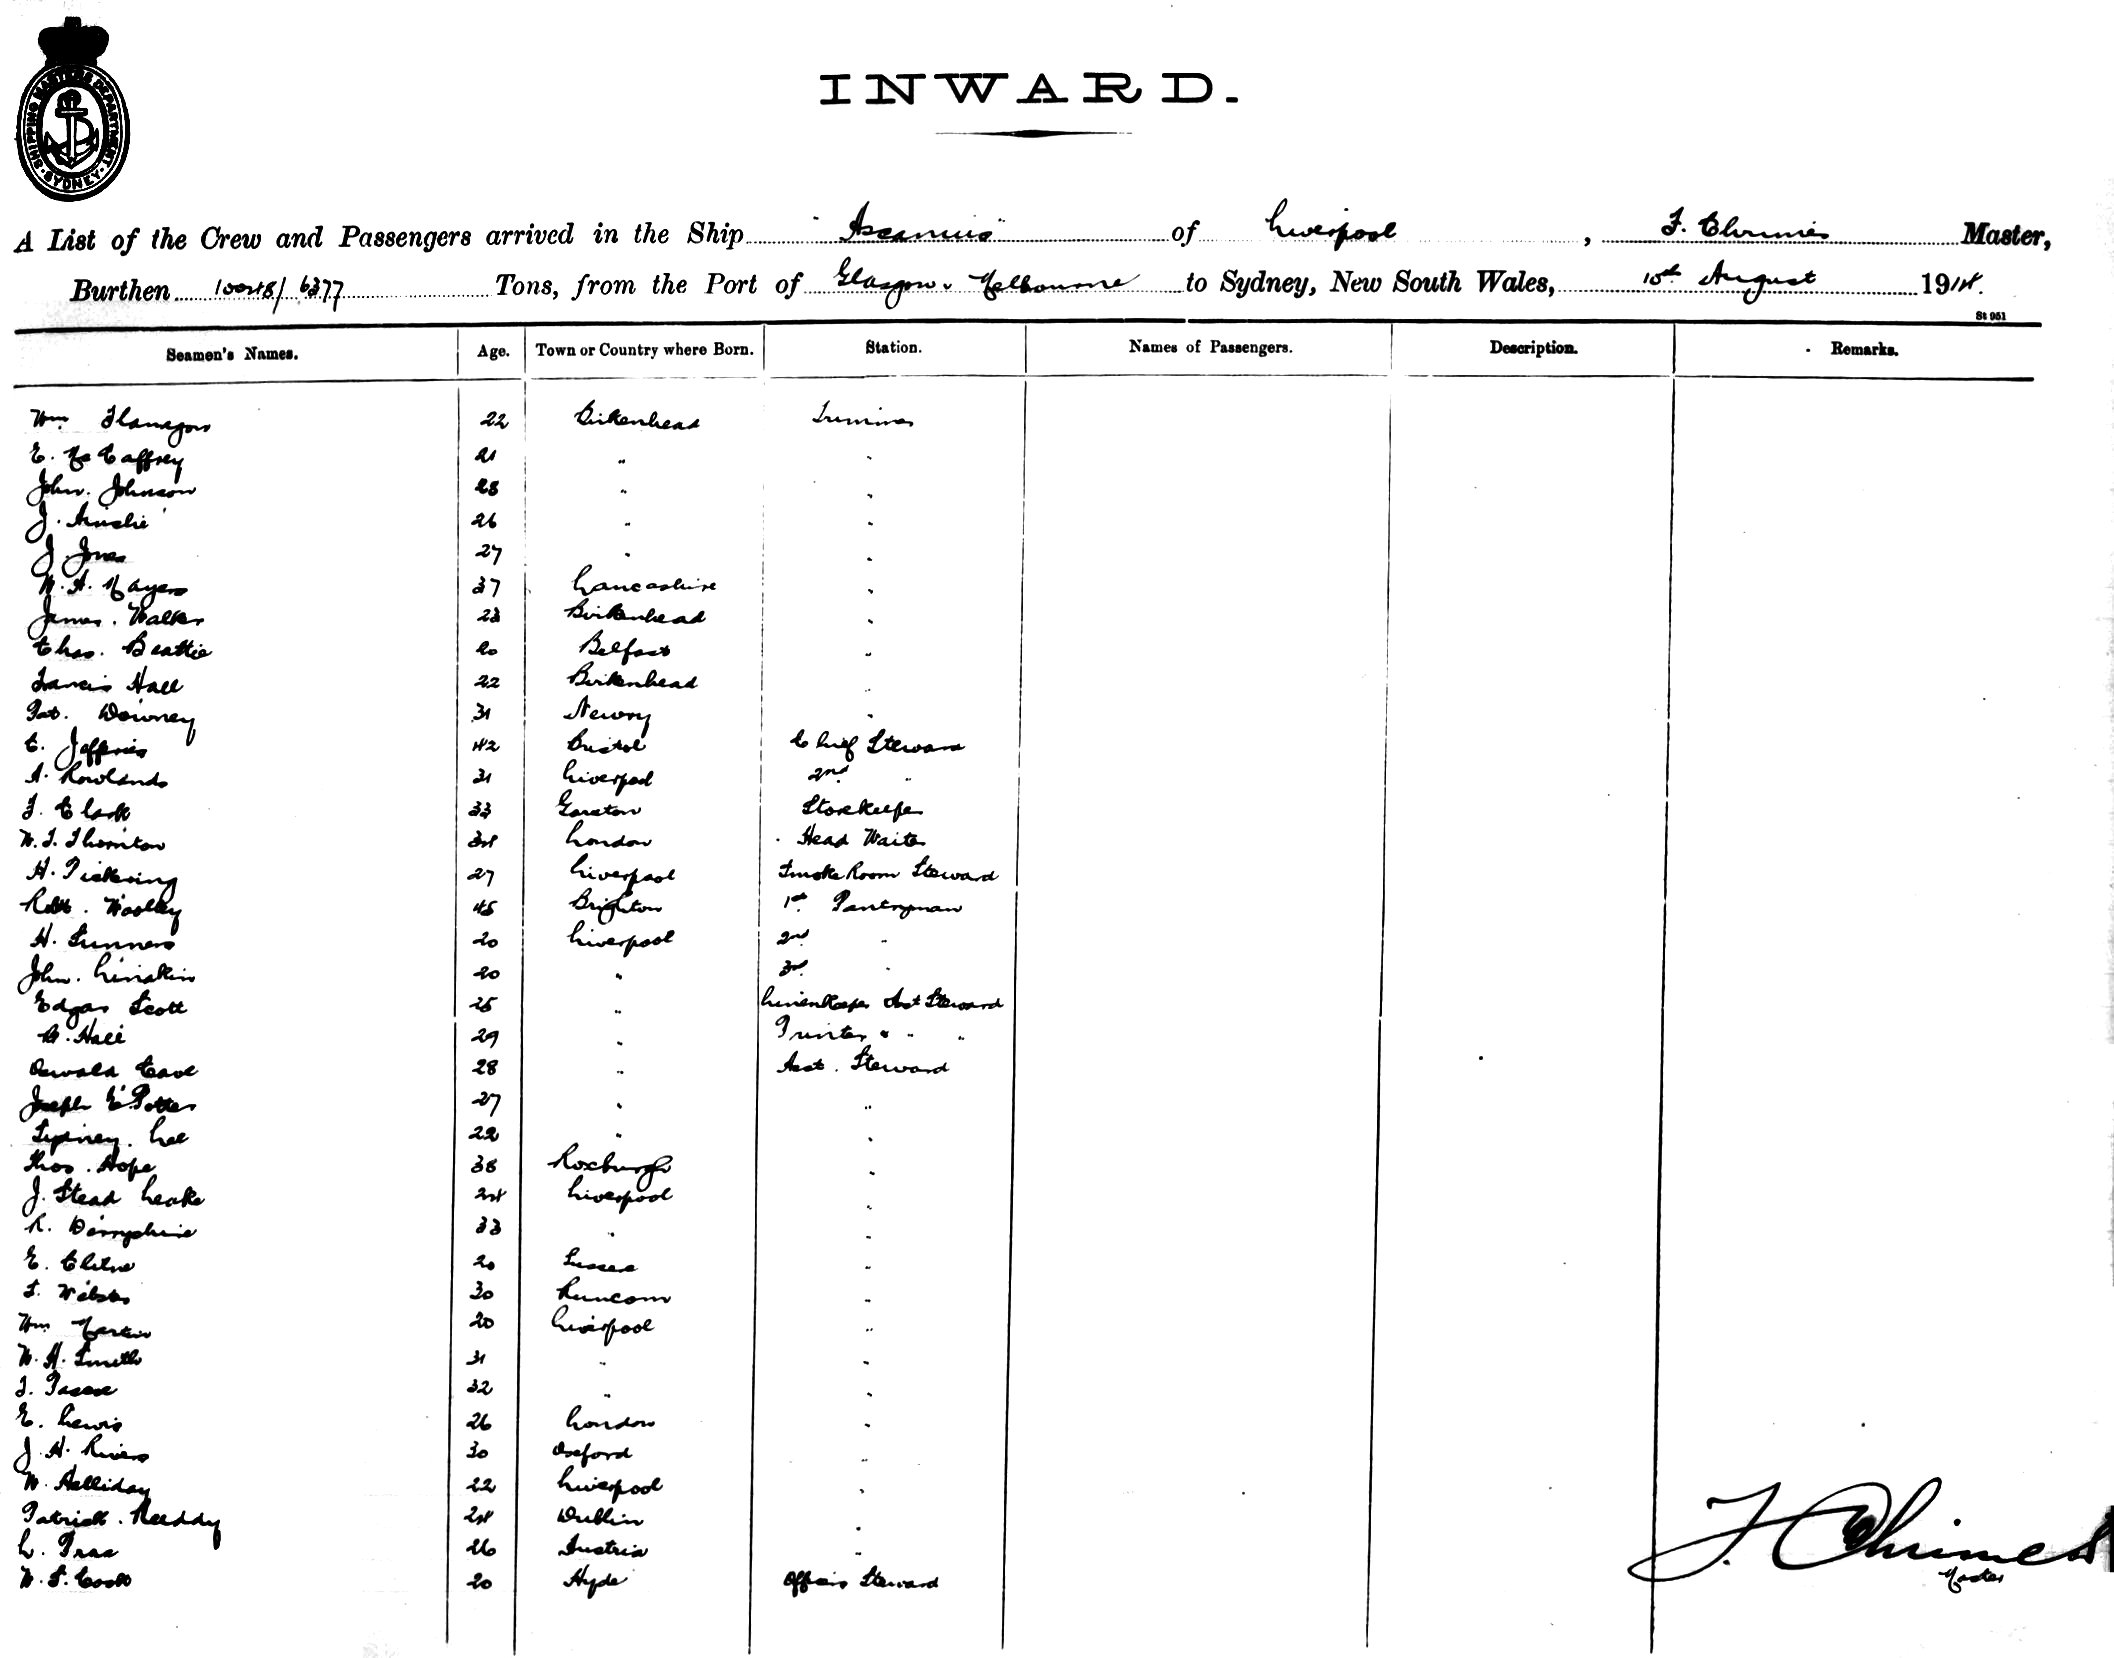 SHIPPING MASTERS DEPARTMENT · SYDNEY ·
INWARD.
A List of the Crew and Passengers arrived in the Ship "Ascanius" of Liverpool, F. Chrimes Master,
Burthen 10048/6377 Tons, from the Port of Glasgow Melbourne to Sydney, New South Wales, 15th August 1914.
St 951
Seamen's Names. Age. Town or Country where Born. Station. Names of Passengers. Description. Remarks.
Wm Flanagan 22 Birkenhead Trimmer
E. McCaffrey 21 " "
John. Johnson 28 " "
J. Ainslie 26 " "
J. Jones 27 " "
W. A. Mayers 37 Lancashire "
James. Walker 23 Birkenhead "
Chas. Beattie 20 Belfast "
Francis Hall 22 Birkenhead "
Pat. Downey 31 Newry "
C. Jefferies 42 Bristol Chief Steward
A. Rowlands 31 Liverpool 2nd "
F. Clark 33 Garston Storekeeper
W. F. Thornton 34 London Head Waiter
H. Pickering 27 Liverpool Smoke Room Steward
Robt. Woolley 45 Brighton 1st Pantryman
H. Sunners 20 Liverpool 2nd "
John. Liniskin 20 " 3rd "
Edgar Scott 25 " Linenkeeper Asst Steward
Hall 29 " Printer " "
Oswald Cave 28 " Asst. Steward
Joseph E. Potter 27 " "
Sydney. Lee 22 " "
Thos. Hope 38 Roxburgh "
J. Stead Leake 24 Liverpool "
R. 33 " "
E. 20 Sussex "
Webster 30 Runcorn "
Wm Martin 20 Liverpool "
W. H. Smith 31 " "
32 " "
E. Lewis 26 London "
J. H. Rivers 30 Oxford "
W. Halliday 22 Liverpool "
Patrick. Reeddy 24 Dublin "
L. Praa 26 Austria "
W. S. Cook 20 Hyde Officers Steward
F. Chrimes
Master